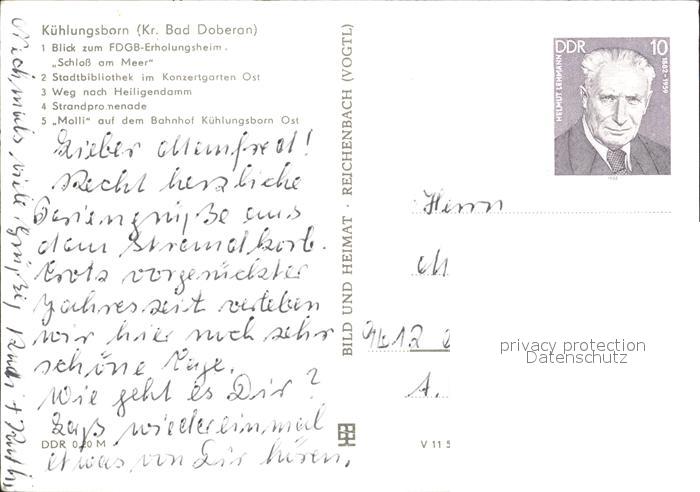 Kühlungsborn (Kr. Bad Doberan)
1 Blick zum FDGB-Erholungsheim
„Schloß am Meer“
2 Stadtbibliothek im Konzertgarten Ost
3 Weg nach Heiligendamm
4 Strandpromenade
5 „Molli“ auf dem Bahnhof Kühlungsborn Ost
Lieber Manfred!
Recht herzliche
Feriengrüße aus
dem Strandkorb.
Trotz vorgerückter
Jahreszeit verleben
wir hier noch sehr
schöne Tage.
Wie geht es Dir?
Laß wiedereinmal
etwas von Dir hören.
Nochmals viele Grüße,
DDR 0,20 M
BILD UND HEIMAT · REICHENBACH (VOGTL)
V 11 5
DDR 10
HELMUT LEHMANN
1882-1959
Herrn
M
A.
privacy protection
Datenschutz